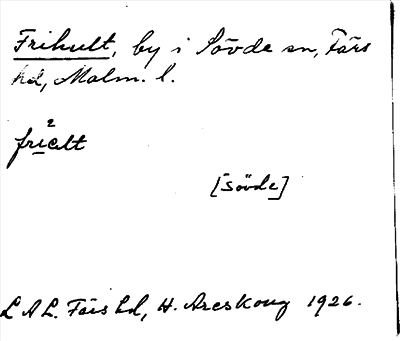 Frihult, by i Sövde sn, Färs
hd, Malm. l.
2
friəlt
[Sövde]
LAL. Färs hd, H. Areskoug 1926.